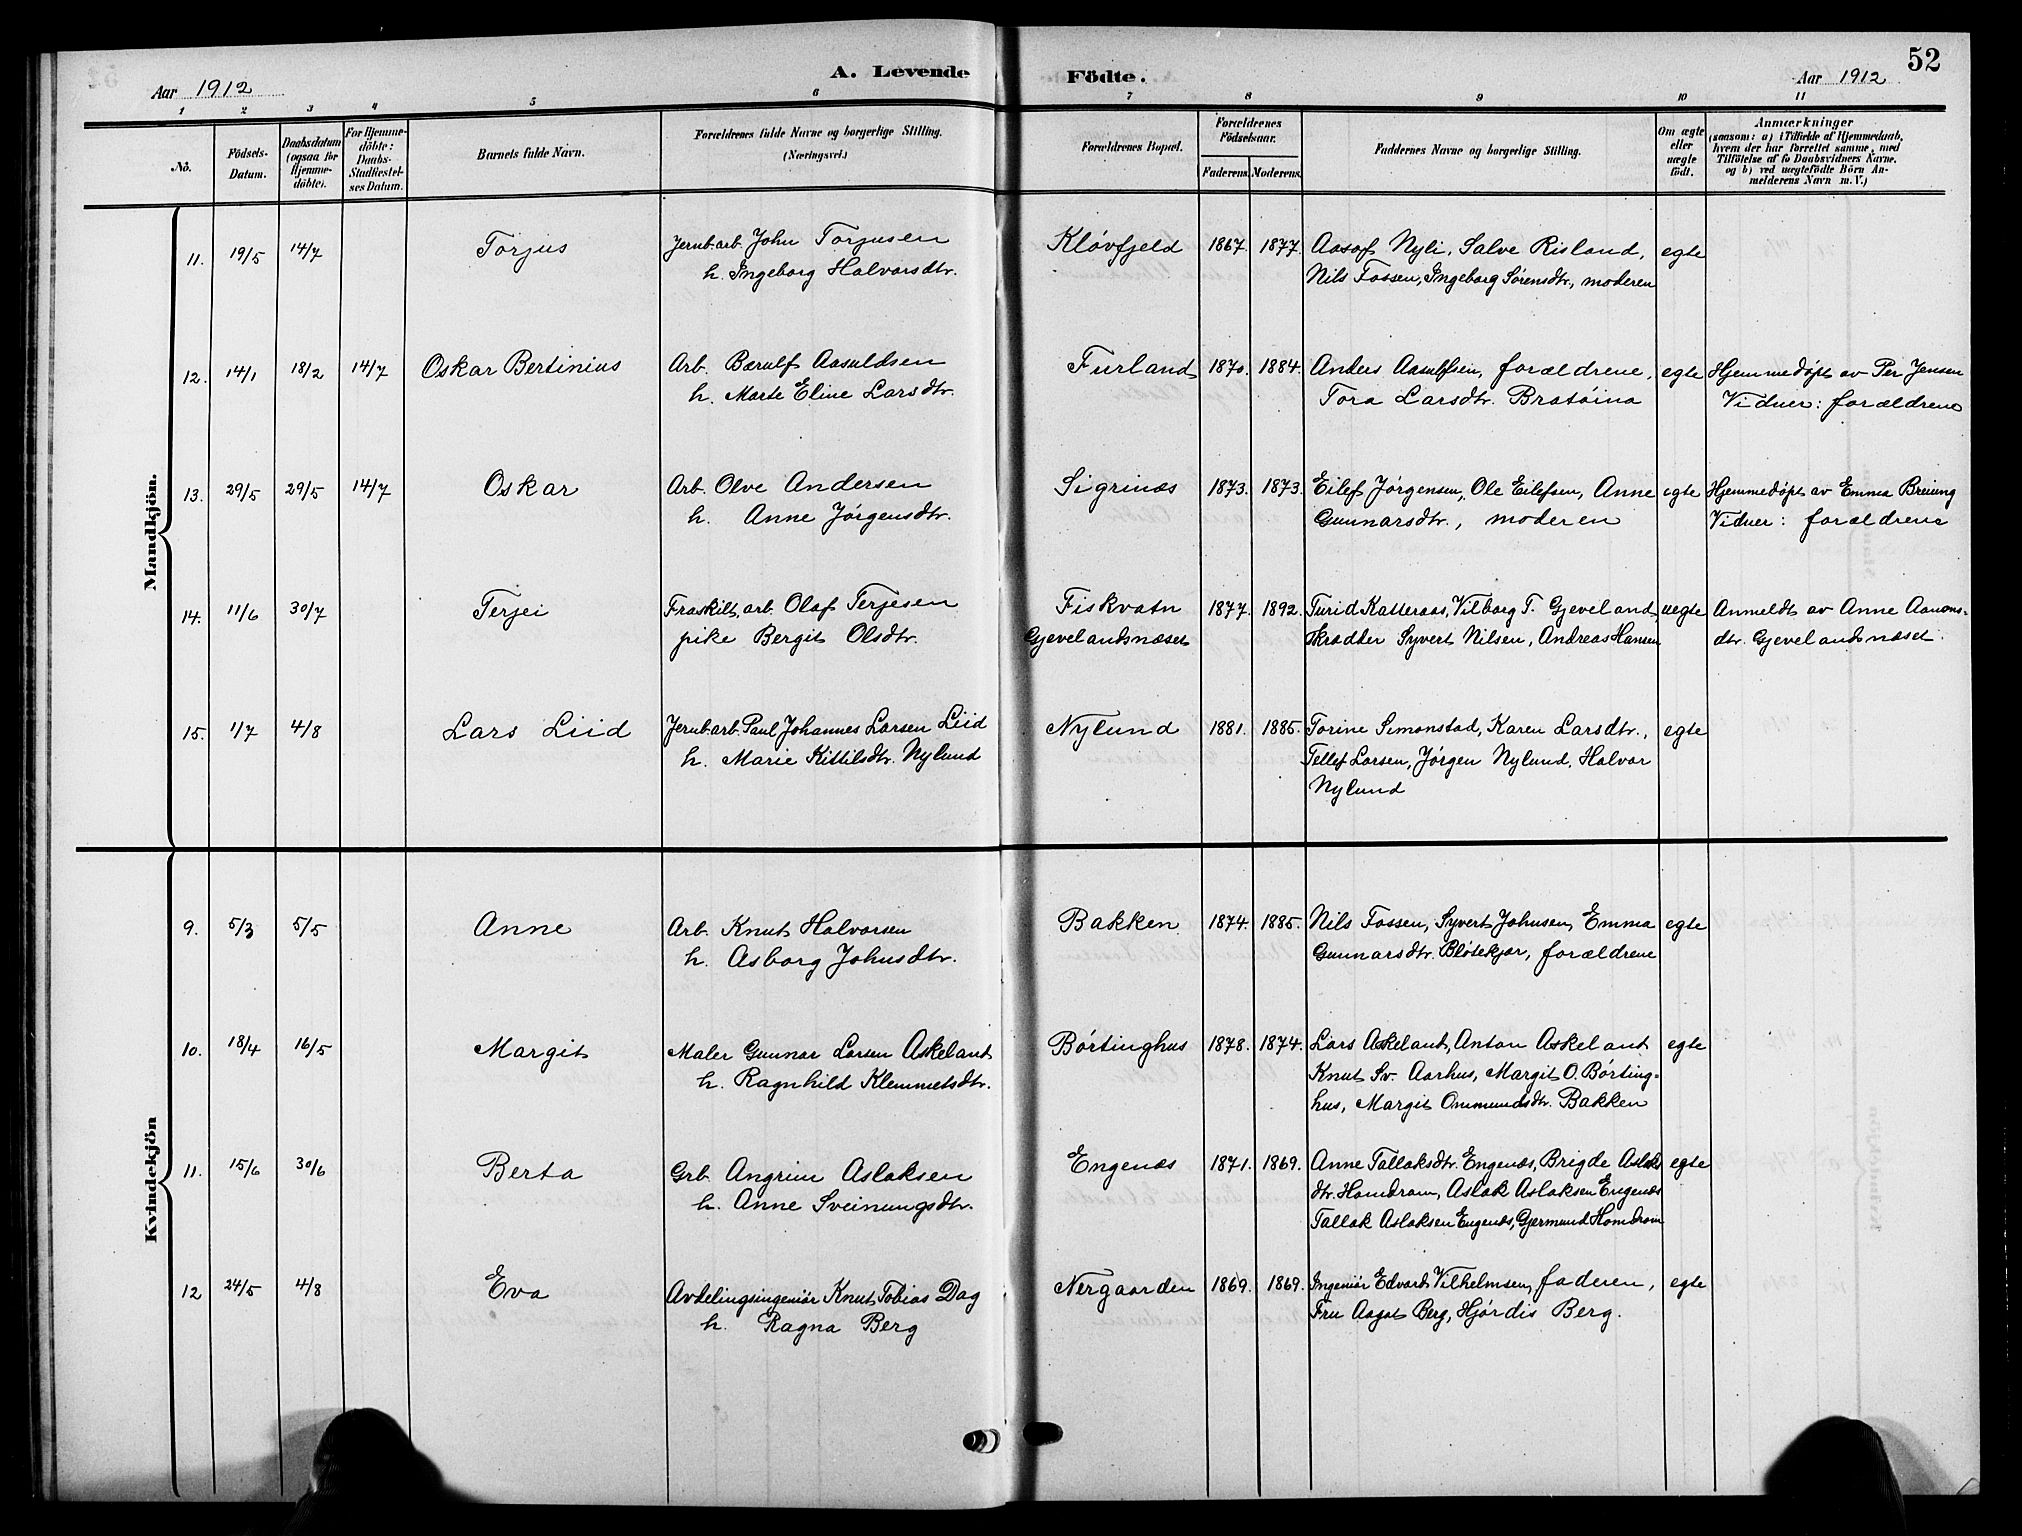 52
A. Levende Födte.
Aar 1912
Aar 1912
1 2 3 4 5 6 7 8 9 10 11
No.
Födsels-Datum.
Daabsdatum (ogsaa for Hjemme-döbte).
For Hjemme-döbte: Daabs-Stadfæstel-ses Datum.
Barnets fulde Navn.
Forældrenes fulde Navne og borgerlige Stilling.
(Næringsvei.)
Forældrenes Bopæl.
Forældrenes Födselsaar.
Faderens. Moderens.
Faddernes Navne og borgerlige Stilling.
Om ægte eller uægte födt.
Anmærkninger
(saasom: a) i Tilfælde af Hjemmedaab,
hvem der har forrettet samme, med
Tilföielse af to Daabsvidners Navne.
og b) ved uægtefödte Börn An-
melderens Navn m. V.)
Mandkjön.
11. 19/5 14/7 Torjus Jernb.arb. John Torjusen Kløvfjeld 1867. 1877. Aasof Nyli, Salve Risland, egte
h. Ingeborg Halvorsdtr. Nils Fossen, Ingeborg Sørensdtr., moderen
12. 14/1 18/2 14/7 Oskar Bertinius Arb. Bærulf Aasuldsen Furland 1870. 1884. Anders Aasulfsen, forældrene, egte Hjemmedøpt av Per Jensen
h. Marte Eline Larsdtr. Tora Larsdtr. Bratøina Vidner: forældrene
13. 29/5 29/5 14/7 Oskar Arb. Olve Andersen Sigrinæs 1873. 1873. Eilef Jørgensen, Ole Eilefsen, Anne egte Hjemmedøpt av Emma Breiung
h. Anne Jørgensdtr. Gunnarsdtr., moderen Vidner: forældrene
14. 11/6 30/7 Terjei Fraskilt, arb. Olaf Terjesen Fiskvatn 1877. 1892. Turid Katteraas, Vilborg T. Gjeveland, uegte Anmeldt av Anne Aanons-
pike Bergit Olsdtr. Gjevelandsnæset Skrædder Syvert Nilsen, Andreas Hansen dtr. Gjevelandsnæset.
15. 1/7 4/8 Lars Liid Jernb.arb. Paul Johannes Larsen Liid Nylund 1881. 1885. Torine Simonstad, Karen Larsdtr., egte
h. Marie Kittilsdtr. Nylund Tellef Larsen, Jørgen Nylund, Halvor
Nylund
Kvindekjön
9. 5/3 5/5 Anne Arb. Knut Halvorsen Bakken 1874. 1885. Nils Fossen, Syvert Johnsen, Emma egte
h. Asborg Johnsdtr. Gunnarsdtr. Bløsekjær, forældrene
10. 18/4 16/5 Margit Maler Gunnar Larsen Askelant Børtinghus 1878. 1874. Lars Askelant, Anton Askelant egte
h. Ragnhild Klemmetsdtr. Knut Sv. Aarhus, Margit O. Børting-
hus, Margit Ommundsdtr. Bakken
11. 15/6 30/6 Berta Grb. Angrim Aslaksen Engenæs 1871. 1869. Anne Tallaksdtr. Engenæs, Brigde Aslaks egte
h. Anne Sveinungsdtr. dtr. Homdrom, Aslak Aslaksen Engenæs
Tallak Aslaksen Engenæs, Gjermund Homdrom
12 24/5 4/8 Eva Avdelingsingeniør Knut Tobias Dag Nergaarden 1869. 1869. Ingeniør Edvard Vilhelmsen, faderen, egte
h. Ragna Berg Fru Aagot Berg, Hjørdis Berg.